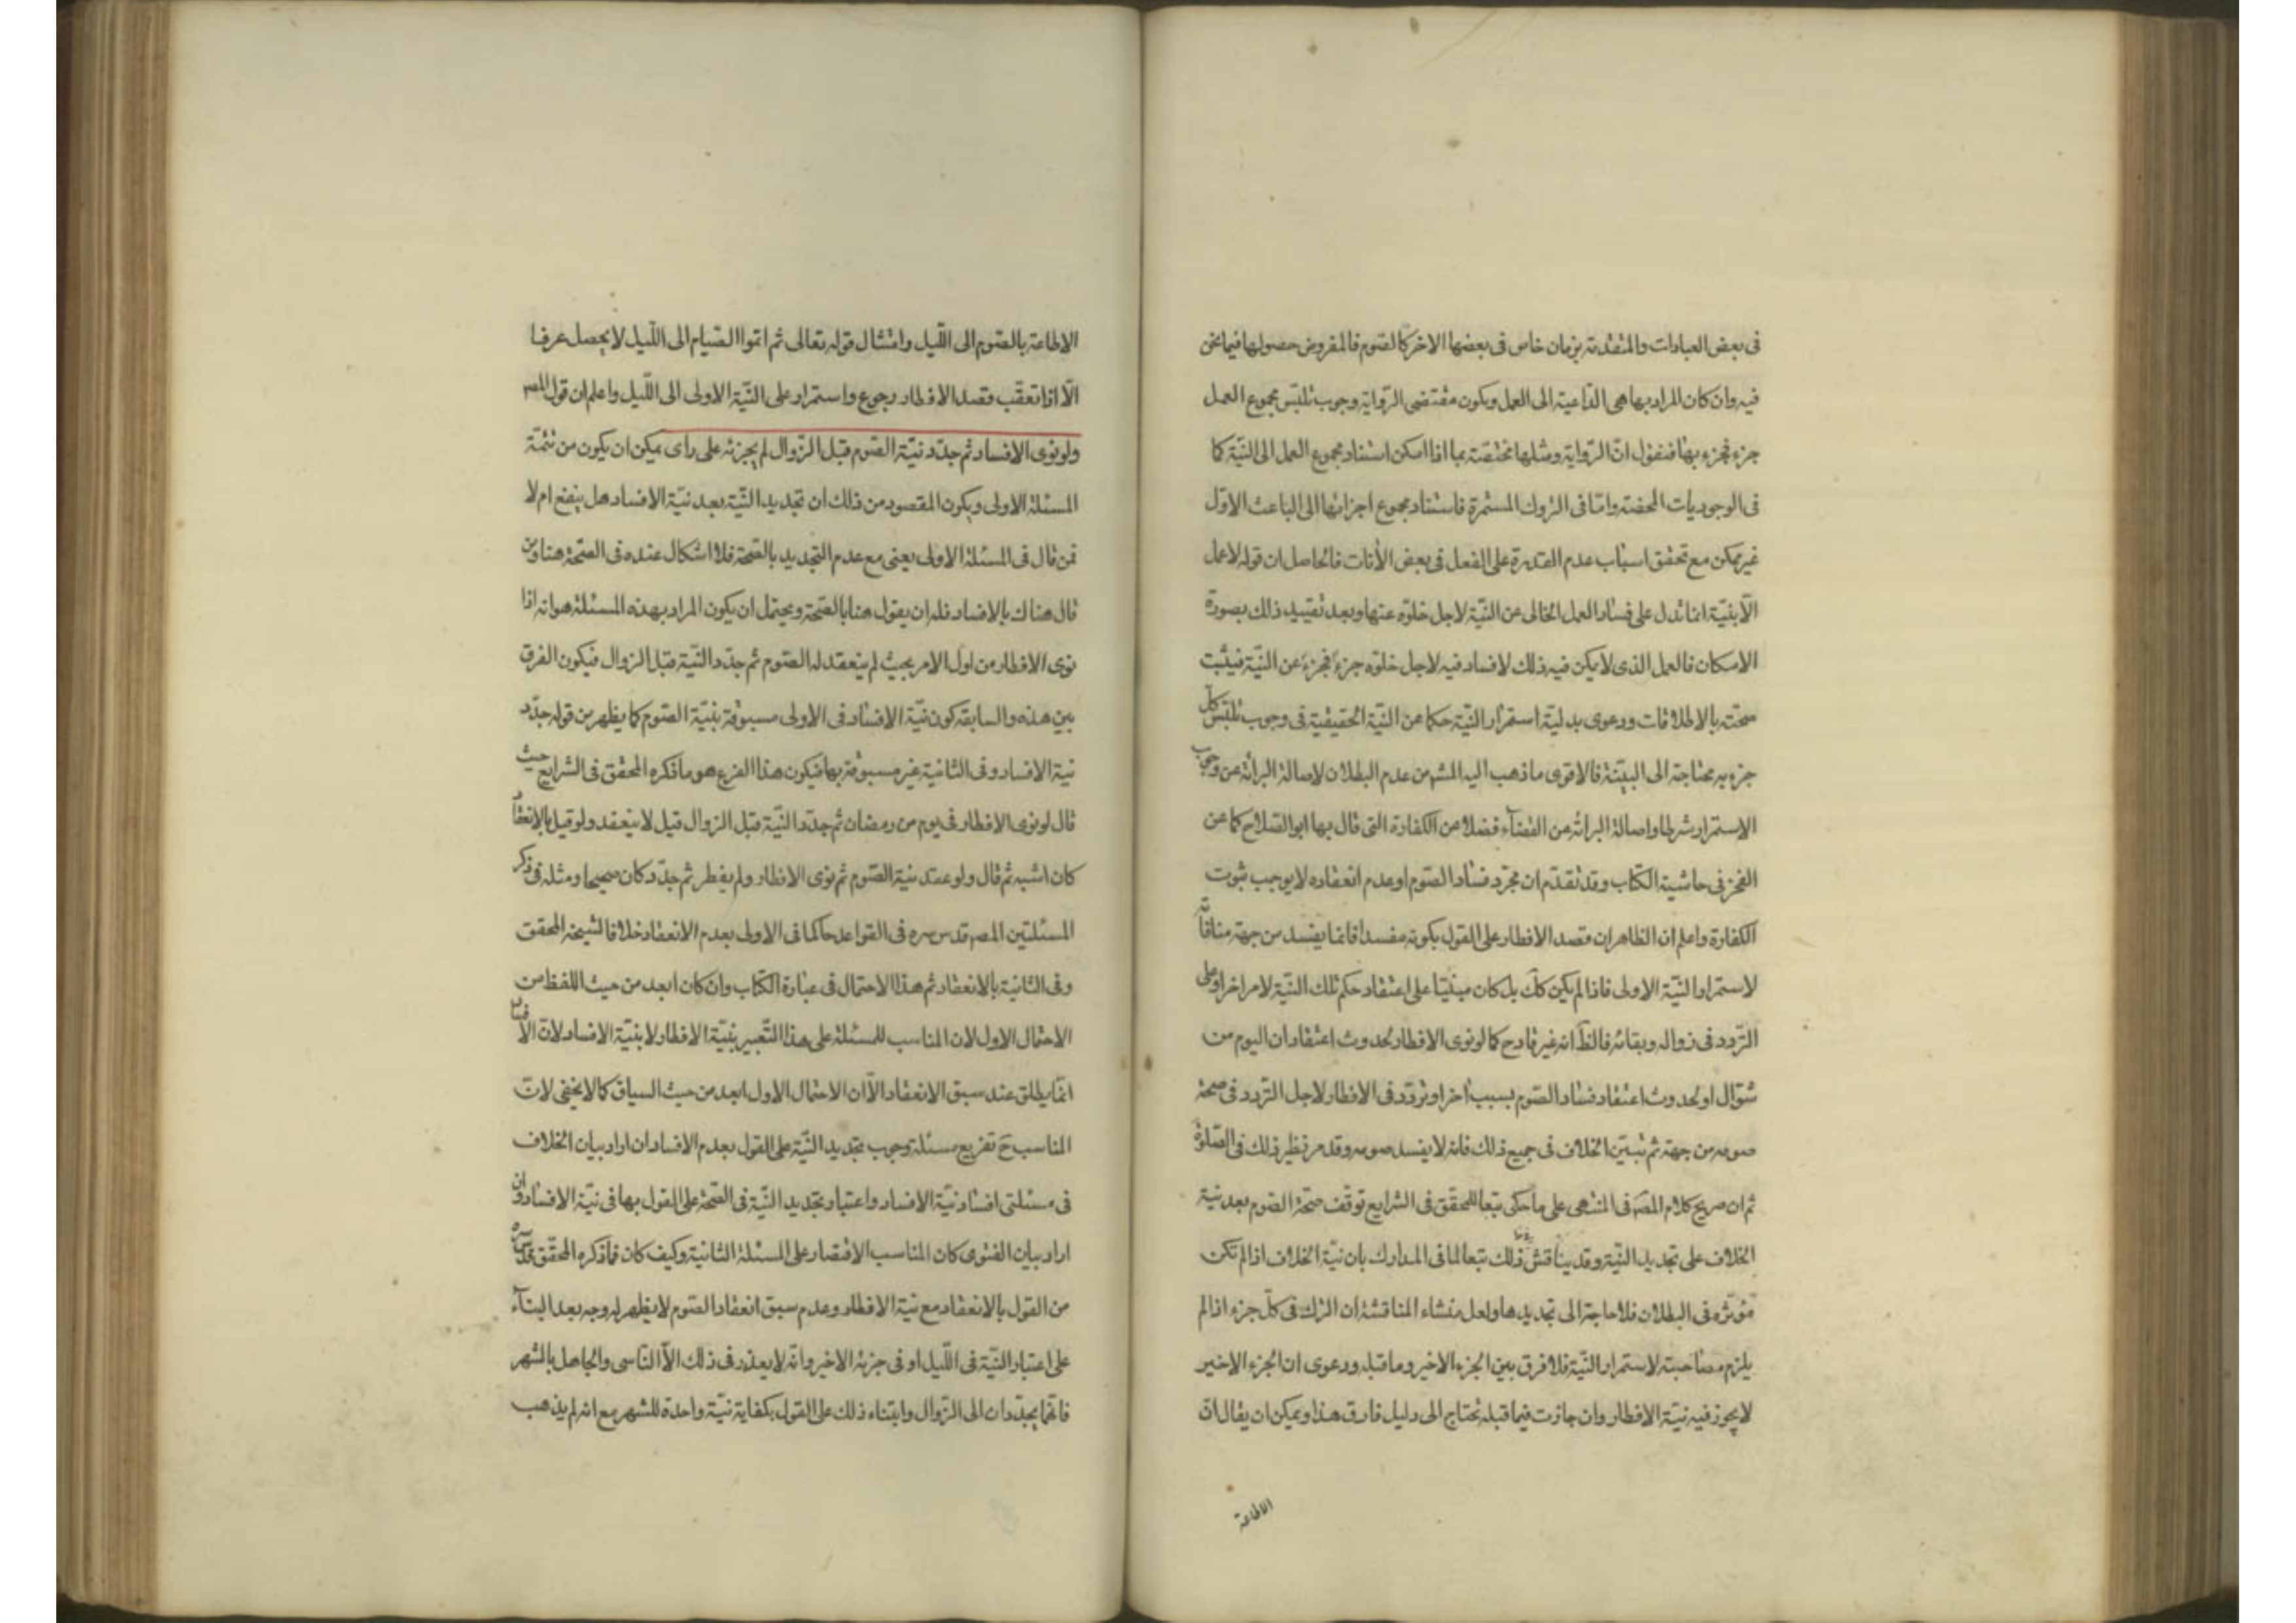 فى بعض العبادات والمتقدمة بزمان خاص فى بعضها الاخر كالصوم فالمفروض حصولها فيما نحن
فيه وان كان المراد بها هى الداعية الى العمل ويكون مقتضى الرواية وجوب تلبّس مجموع العمل
جزء فجزء بها فنقول انّ الرّواية ومثلها مختصّة بما اذا امكن استناد مجموع العمل الى النيّة كما
فى الوجوديات المحضة وامّا فى التروك المستمرة فاستناد مجموع اجزائها الى الباعث الاوّل
غير ممكن مع تحقق اسباب عدم القدرة على الفعل فى بعض الأنات فالحاصل ان قوله لا عمل
الّا بنيّة انما تدل على فساد العمل الخالى عن النيّة لاجل خلوّه عنها وبعد تقييد ذلك بصورة
الامكان فالعمل الذى لا يمكن فيه ذلك لا فساد فيه لاجل خلوّه جزء فجزء عن النيّة فيثبت
صحّته بالاطلاقات ودعوى بدليّة استمرار النيّة حكما عن النيّة الحقيقية فى وجوب تلبّس كلّ
جزء به محتاجة الى البيّنة فالاقوى ما ذهب اليه المشهر من عدم البطلان لاصالة البرائة عن وجوب
الاستمرار شرطا واصالة البرائة عن القضآء فضلا عن الكفارة التى قال بها ابو الصّلاح كما عن
الفخر فى حاشية الكتاب وقد تقدّم ان مجرّد فساد الصّوم او عدم انعقاده لا يوجب ثبوت
الكفارة واعلم ان الظاهر ان قصد الافطار على القول بكونه مفسدا فانما يفسد من جهة منافاته
لاستمرار النيّة الاولى فاذا لم يكن كلّ بل كان مبنيّا على اعتقاد حكم تلك النيّة لامر اخر او على
التردد فى زواله وبقائه فالظّ انه غير قادح كما لو نوى الافطار لحدوث اعتقاد ان اليوم من
شوّال او لحدوث اعتقاد فساد الصّوم بسبب اخر او تردّد فى الافطار لاجل التردد فى صحة
صومه من جهة ثم تبيّن الخلاف فى جميع ذلك فانه لا يفسد صومه وقد مر نظير ذلك فى الصّلوة
ثم ان صريح كلام المصّ فى المنتهى على ما حكى تبعا للمحقّق فى الشرايع توقف صحّة الصّوم بعد نية
الخلاف على تجديد النيّة وقد يناقش ذلك تبعا لما فى المدارك بان نيّة الخلاف اذا لم تكن
مؤثره فى البطلان فلا حاجة الى تجديدها ولعل منشاء المناقشة ان الترك فى كلّ جزء اذا لم
يلزم مصاحبته لاستمرار النيّة فلا فرق بين الجزء الاخير وما قبله ودعوى ان الجزء الاخير
لا يجوز فيه نيّة الافطار وان جازت فيما قبله تحتاج الى دليل فارق هذا ويمكن ان يقال انّ
الاطاعة
الاطاعة بالصّوم الى اللّيل وامتثال قوله تعالى ثم اتمّوا الصّيام الى اللّيل لا يحصل عرفا
الّا اذا تعقّب قصد الافطار رجوع واستمرار على النيّة الاولى الى اللّيل واعلم ان قول المصر
ولو نوى الافساد ثم جدّد نيّة الصّوم قبل الزّوال لم يجزئه على راى يمكن ان يكون من تتمّة
المسئلة الاولى ويكون المقصود من ذلك ان تجديد النّية بعد نيّة الافساد هل ينفع ام لا
فمن قال فى المسئلة الاولى يعنى مع عدم التجديد بالصّحة فلا اشكال عنده فى الصّحة هنا ومن
قال هناك بالافساد فله ان يقول هنا بالصّحة ويحتمل ان يكون المراد بهذه المسئلة هو انه اذا
نوى الافطار من اول الامر بحيث لم ينعقد له الصّوم ثم جدّد النّية قبل الزوال فيكون الفرق
بين هذه والسابقة كون نيّة الافساد فى الاولى مسبوقة بنيّة الصّوم كما يظهر من قوله جدّد
نية الافساد وفى الثانية غير مسبوقة بها فيكون هذا الفرع هو ما ذكره المحقق فى الشرايع حيث
قال لو نوى الافطار فى يوم من رمضان ثم جدّد النيّة قبل الزوال قيل لا ينعقد ولو قيل بالانعقاد
كان اشبه ثم قال ولو عقد نية الصّوم ثم نوى الافطار ولم يفطر ثم جدّد كان صحيحا ومثله فى ذكر
المسئلتين المصر قدس سره فى القواعد حاكما فى الاولى بعدم الانعقاد خلافا لشيخه المحقق
وفى الثانية بالانعقاد ثم هذا الاحتمال فى عبارة الكتاب وان كان ابعد من حيث اللفظ من
الاحتمال الاول لان المناسب للمسئلة على هذا التّعبير بنيّة الافطار لا بنيّة الافساد لانّ الافساد
انّما يطلق عند سبق الانعقاد الّا ان الاحتمال الاول ابعد من حيث السياق كما لا يخفى لانّ
المناسب حَ تفريع مسئلة وجوب تجديد النّية على القول بعدم الافساد ان اراد بيان الخلاف
فى مسئلتى افساد نيّة الافساد واعتبار تجديد النّية فى الصّحة على القول بها فى نيّة الافساد وان
اراد بيان الفتوى كان المناسب الاقتصار على المسئلة الثانية وكيف كان فما ذكره المحقّق قدّس سرّه
من القول بالانعقاد مع نية الافطار وعدم سبق انعقاد الصّوم لا يظهر له وجه بعد البنآء
على اعتبار النّية فى اللّيل او فى جزئه الاخير وانّه لا يعذر فى ذلك الّا النّاسى والجاهل بالشهر
فانّهما يجدّدان الى الزّوال وابتناء ذلك على القول بكفاية نيّة واحدة للشهر مع انه لم يذهب